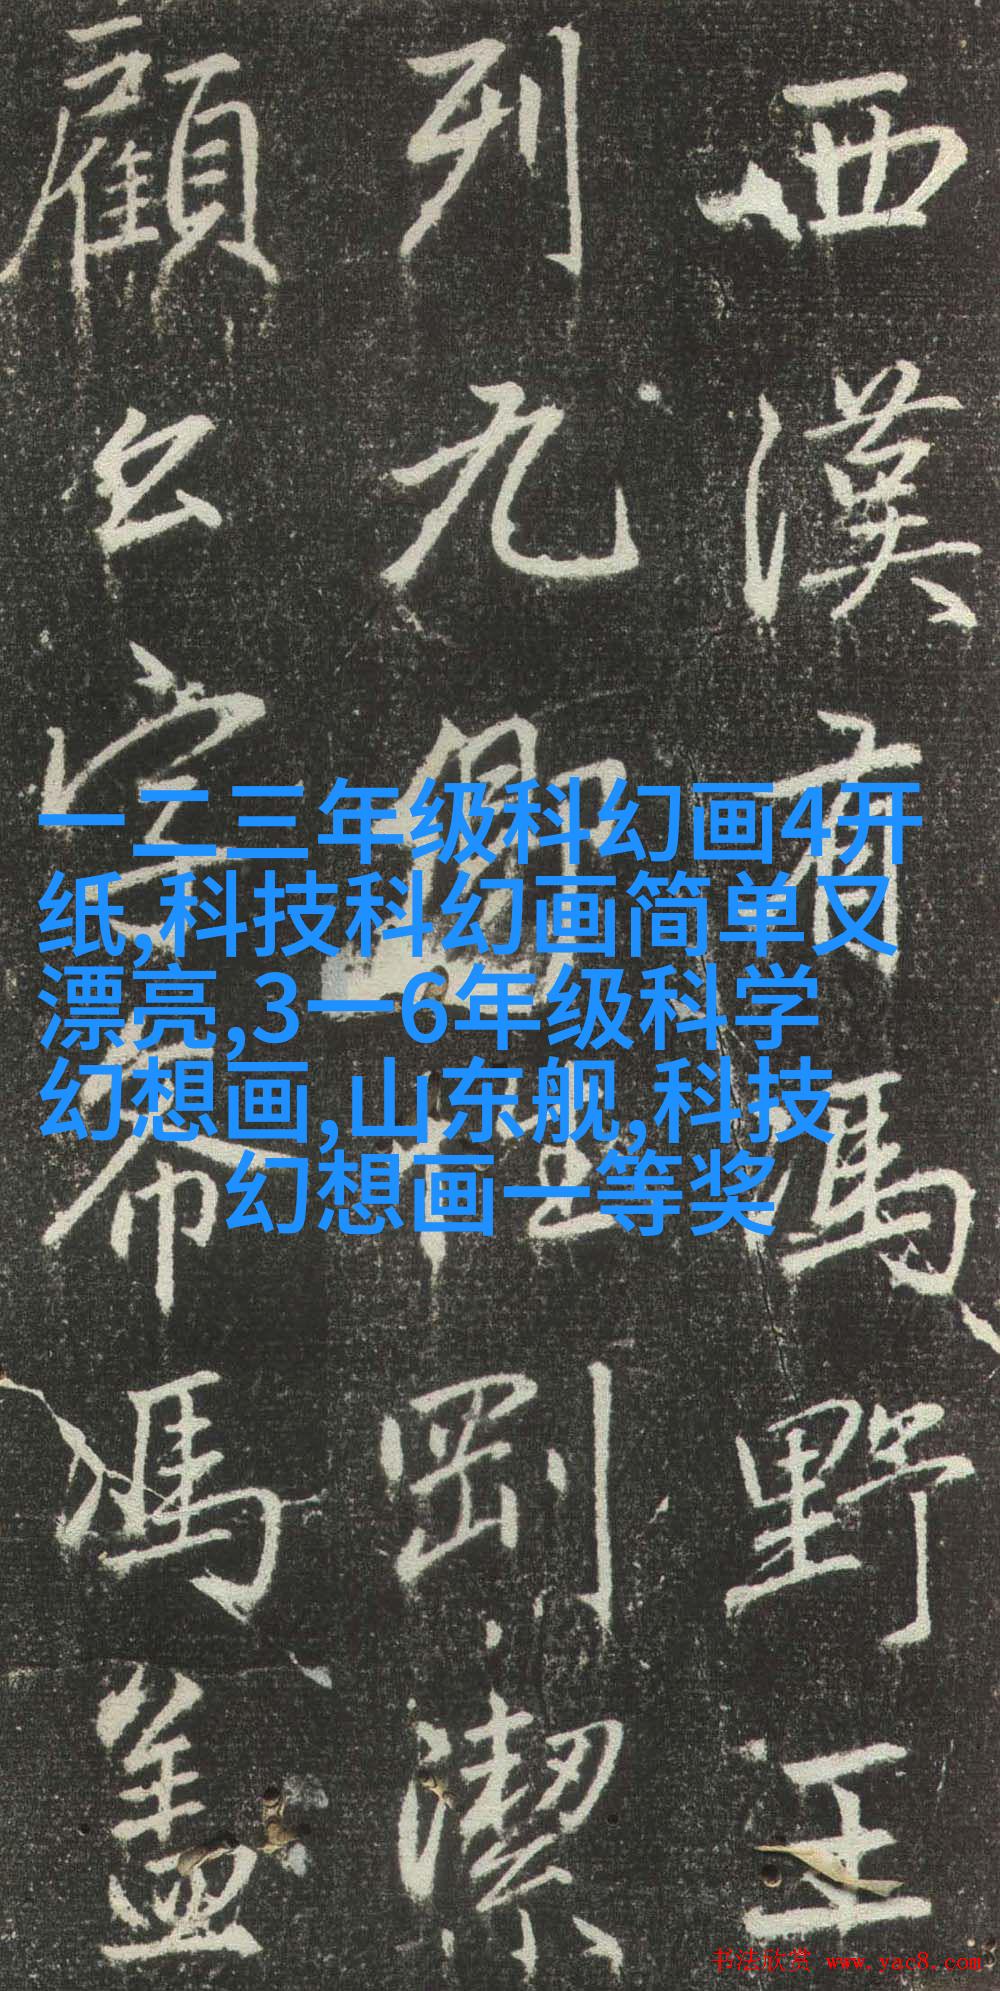 西漢有馮野王
列九卿性剛潔
顧公字希馮蓋
一二三年级科幻画4开
纸,科技科幻画简单又
漂亮,3一6年级科学
幻想画,山东舰,科技
幻想画一等奖
书法欣赏 www.yac8.com